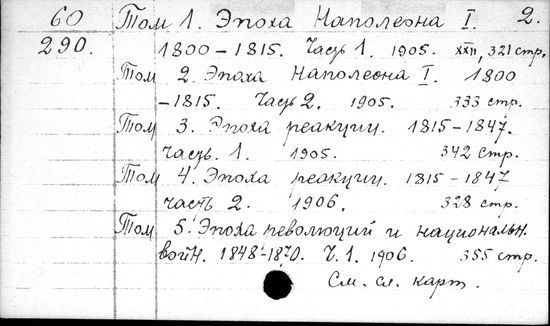 60 Том 1. Эпоха Наполеона I. 2.
290. 1800-1815. Часть 1. 1905. XXII, 321 стр.
Том 2. Эпоха Наполеона I. 1800
-1815. Часть 2. 1905. 333 стр.
Том 3. Эпоха реакции. 1815-1847.
часть. 1. 1905. 342 стр.
Том 4. Эпоха реакции. 1815-1847
часть 2. 1906. 328 стр.
Том 5. Эпоха революций и национальн.
войн. 1848-1870. Ч. 1. 1906. 355 стр.
См. сл. карт.